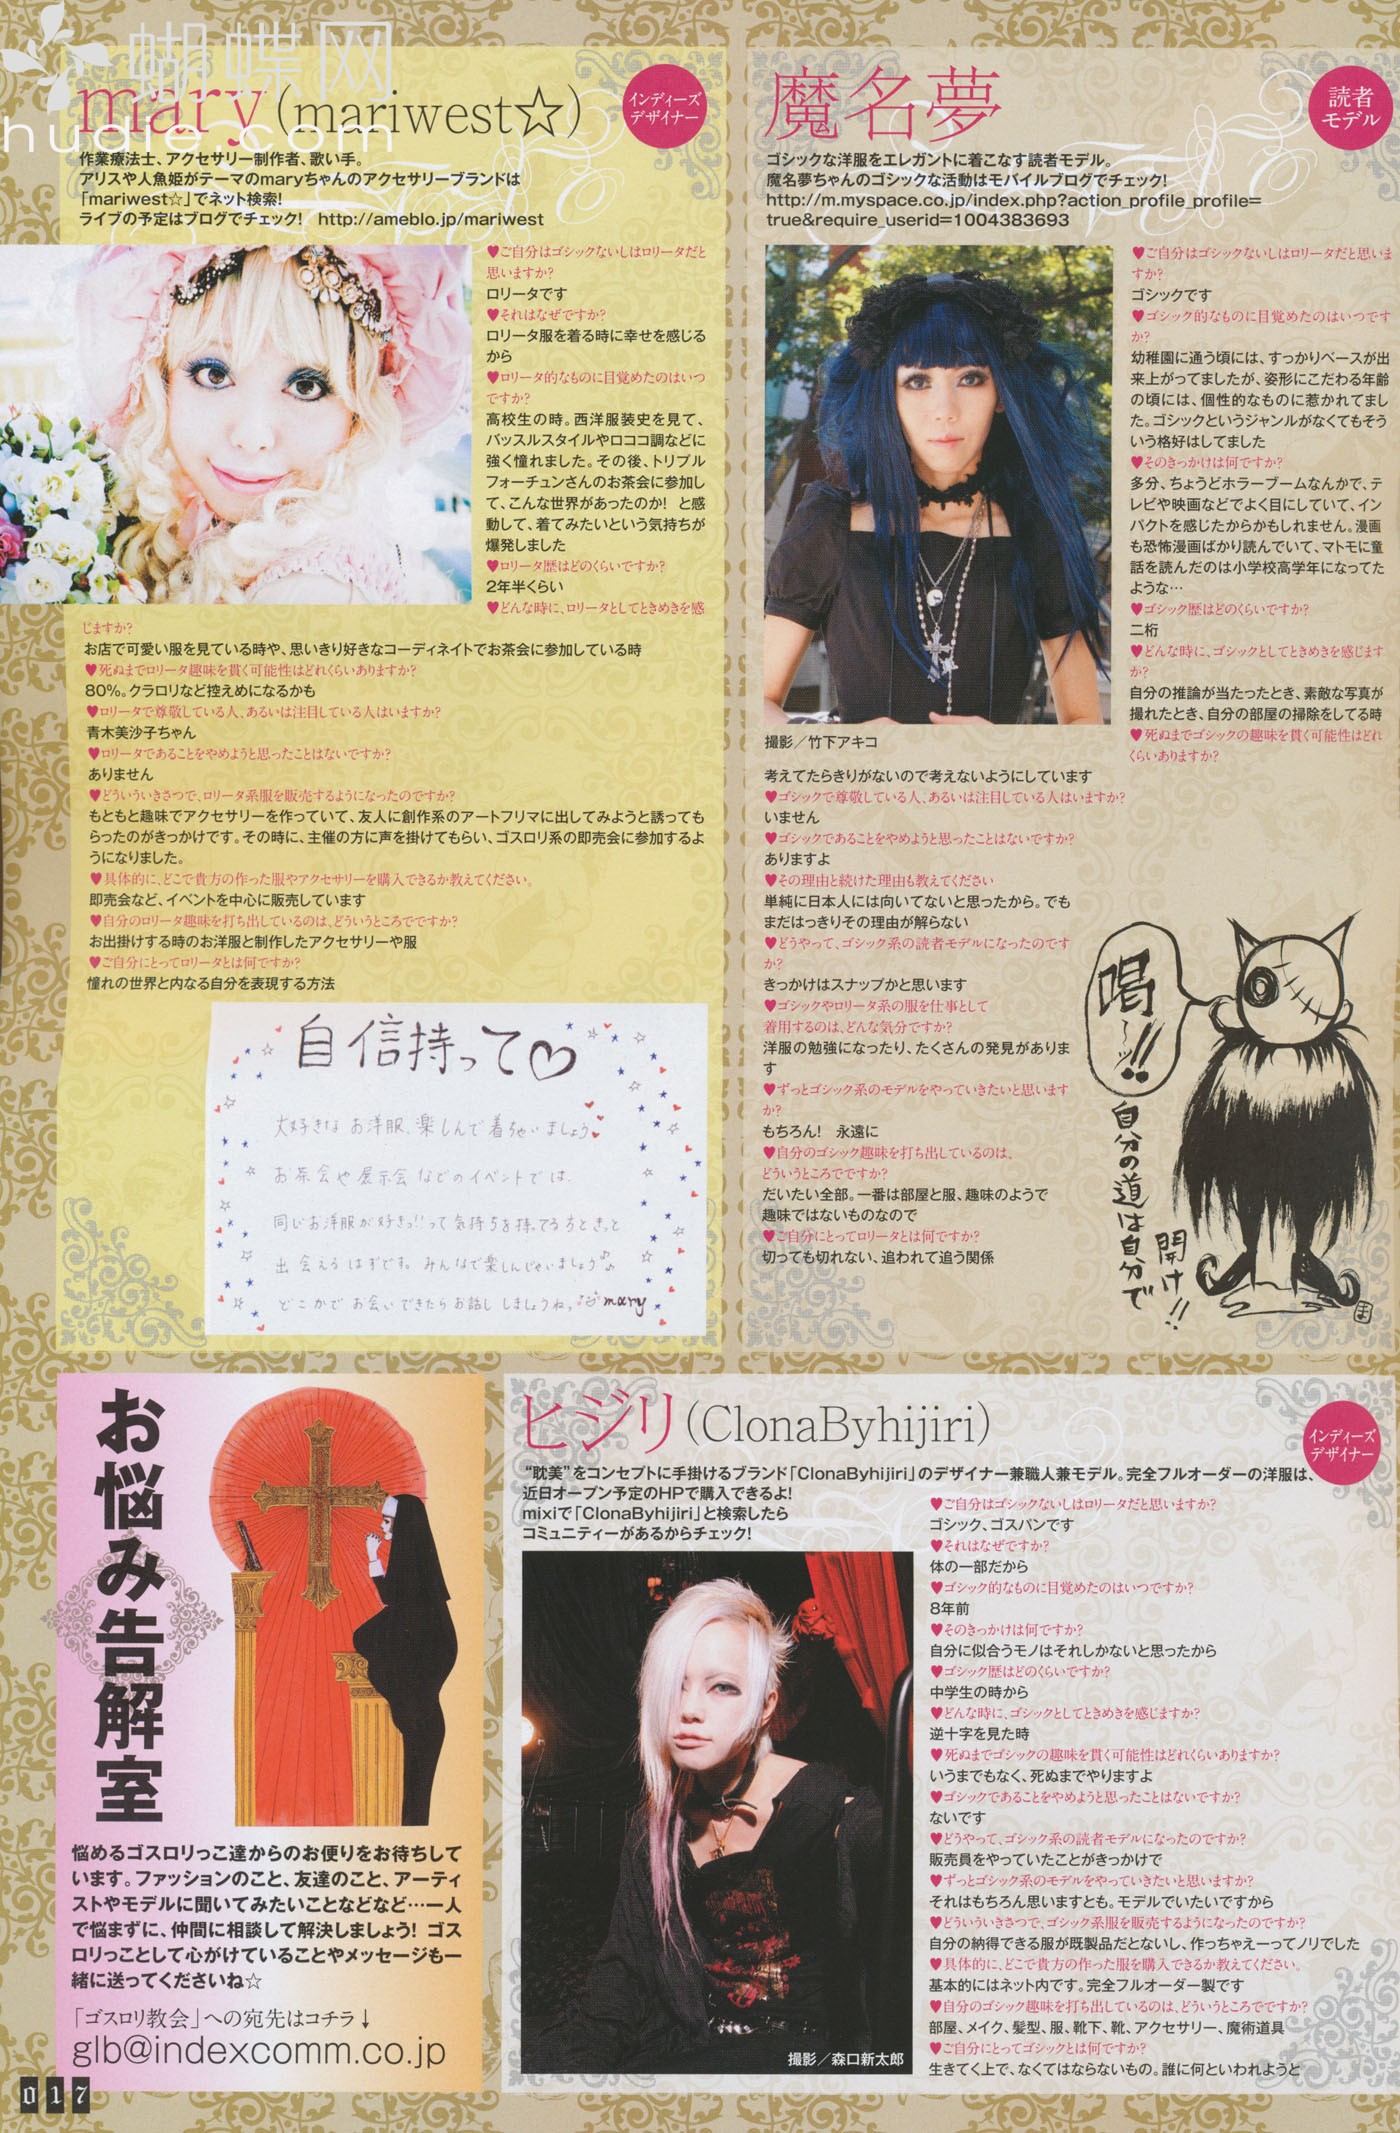 蝴蝶网
hudie.com
mary(mariwest☆)
インディーズ
デザイナー
作業療法士、アクセサリー制作者、歌い手。
アリスや人魚姫がテーマのmaryちゃんのアクセサリーブランドは
「mariwest☆」でネット検索!
ライブの予定はブログでチェック! http://ameblo.jp/mariwest
♥ご自分はゴシックないしはロリータだと
思いますか?
ロリータです
♥それはなぜですか?
ロリータ服を着る時に幸せを感じる
から
♥ロリータ的なものに目覚めたのはいつ
ですか?
高校生の時。西洋服装史を見て、
バッスルスタイルやロココ調などに
強く憧れました。その後、トリプル
フォーチュンさんのお茶会に参加し
て、こんな世界があったのか! と感
動して、着てみたいという気持ちが
爆発しました
♥ロリータ歴はどのくらいですか?
2年半くらい
♥どんな時に、ロリータとしてときめきを感
じますか?
お店で可愛い服を見ている時や、思いきり好きなコーディネイトでお茶会に参加している時
♥死ぬまでロリータ趣味を貫く可能性はどれくらいありますか?
80%。クラロリなど控えめになるかも
♥ロリータで尊敬している人、あるいは注目している人はいますか?
青木美沙子ちゃん
♥ロリータであることをやめようと思ったことはないですか?
ありません
♥どういういきさつで、ロリータ系服を販売するようになったのですか?
もともと趣味でアクセサリーを作っていて、友人に創作系のアートフリマに出してみようと誘っても
らったのがきっかけです。その時に、主催の方に声を掛けてもらい、ゴスロリ系の即売会に参加するよ
うになりました。
♥具体的に、どこで貴方の作った服やアクセサリーを購入できるか教えてください。
即売会など、イベントを中心に販売しています
♥自分のロリータ趣味を打ち出しているのは、どういうところでですか?
お出掛けする時のお洋服と制作したアクセサリーや服
♥ご自分にとってロリータとは何ですか?
憧れの世界と内なる自分を表現する方法
自信持って♡
大好きな お洋服、楽しんで着ちゃいましょう♥
お茶会や展示会などのイベントでは、
同じお洋服が好きっ!!って気持ちを持ってる方ときっと
出会えるはずです。みんなで楽しんじゃいましょう♪
どこかで お会いできたらお話し しましょうね。mary
魔名夢
読者
モデル
ゴシックな洋服をエレガントに着こなす読者モデル。
魔名夢ちゃんのゴシックな活動はモバイルブログでチェック!
http://m.myspace.co.jp/index.php?action_profile_profile=
true&require_userid=1004383693
♥ご自分はゴシックないしはロリータだと思いま
すか?
ゴシックです
♥ゴシック的なものに目覚めたのはいつです
か?
幼稚園に通う頃には、すっかりベースが出
来上がってましたが、姿形にこだわる年齢
の頃には、個性的なものに惹かれてまし
た。ゴシックというジャンルがなくてもそう
いう格好はしてました
♥そのきっかけは何ですか?
多分、ちょうどホラーブームなんかで、テ
レビや映画などでよく目にしていて、イン
パクトを感じたからかもしれません。漫画
も恐怖漫画ばかり読んでいて、マトモに童
話を読んだのは小学校高学年になってた
ような…
♥ゴシック歴はどのくらいですか?
二桁
♥どんな時に、ゴシックとしてときめきを感じます
か?
自分の推論が当たったとき、素敵な写真が
撮れたとき、自分の部屋の掃除をしてる時
♥死ぬまでゴシックの趣味を貫く可能性はどれ
くらいありますか?
撮影／竹下アキコ
考えてたらきりがないので考えないようにしています
♥ゴシックで尊敬している人、あるいは注目している人はいますか?
いません
♥ゴシックであることをやめようと思ったことはないですか?
ありますよ
♥その理由と続けた理由も教えてください
単純に日本人には向いてないと思ったから。でも
まだはっきりその理由が解らない
♥どうやって、ゴシック系の読者モデルになったのです
か?
きっかけはスナップかと思います
♥ゴシックやロリータ系の服を仕事として
着用するのは、どんな気分ですか?
洋服の勉強になったり、たくさんの発見がありま
す
♥ずっとゴシック系のモデルをやっていきたいと思います
か?
もちろん! 永遠に
♥自分のゴシック趣味を打ち出しているのは、
どういうところでですか?
だいたい全部。一番は部屋と服、趣味のようで
趣味ではないものなので
♥ご自分にとってロリータとは何ですか?
切っても切れない、追われて追う関係
喝〜ッ!!
自分の道は自分で
開け!!
ま
お悩み告解室
悩めるゴスロリっこ達からのお便りをお待ちして
います。ファッションのこと、友達のこと、アーティ
ストやモデルに聞いてみたいことなどなど…一人
で悩まずに、仲間に相談して解決しましょう! ゴス
ロリっことして心がけていることやメッセージも一
緒に送ってくださいね☆
「ゴスロリ教会」への宛先はコチラ↓
glb@indexcomm.co.jp
017
ヒジリ(ClonaByhijiri)
インディーズ
デザイナー
“耽美”をコンセプトに手掛けるブランド「ClonaByhijiri」のデザイナー兼職人兼モデル。完全フルオーダーの洋服は、
近日オープン予定のHPで購入できるよ!
mixiで「ClonaByhijiri」と検索したら
コミュニティーがあるからチェック!
♥ご自分はゴシックないしはロリータだと思いますか?
ゴシック、ゴスパンです
♥それはなぜですか?
体の一部だから
♥ゴシック的なものに目覚めたのはいつですか?
8年前
♥そのきっかけは何ですか?
自分に似合うモノはそれしかないと思ったから
♥ゴシック歴はどのくらいですか?
中学生の時から
♥どんな時に、ゴシックとしてときめきを感じますか?
逆十字を見た時
♥死ぬまでゴシックの趣味を貫く可能性はどれくらいありますか?
いうまでもなく、死ぬまでやりますよ
♥ゴシックであることをやめようと思ったことはないですか?
ないです
♥どうやって、ゴシック系の読者モデルになったのですか?
販売員をやっていたことがきっかけで
♥ずっとゴシック系のモデルをやっていきたいと思いますか?
それはもちろん思いますとも。モデルでいたいですから
♥どういういきさつで、ゴシック系服を販売するようになったのですか?
自分の納得できる服が既製品だとないし、作っちゃえーってノリでした
♥具体的に、どこで貴方の作った服を購入できるか教えてください。
基本的にはネット内です。完全フルオーダー製です
♥自分のゴシック趣味を打ち出しているのは、どういうところでですか?
部屋、メイク、髪型、服、靴下、靴、アクセサリー、魔術道具
♥ご自分にとってゴシックとは何ですか?
生きてく上で、なくてはならないもの。誰に何といわれようと
撮影／森口新太郎